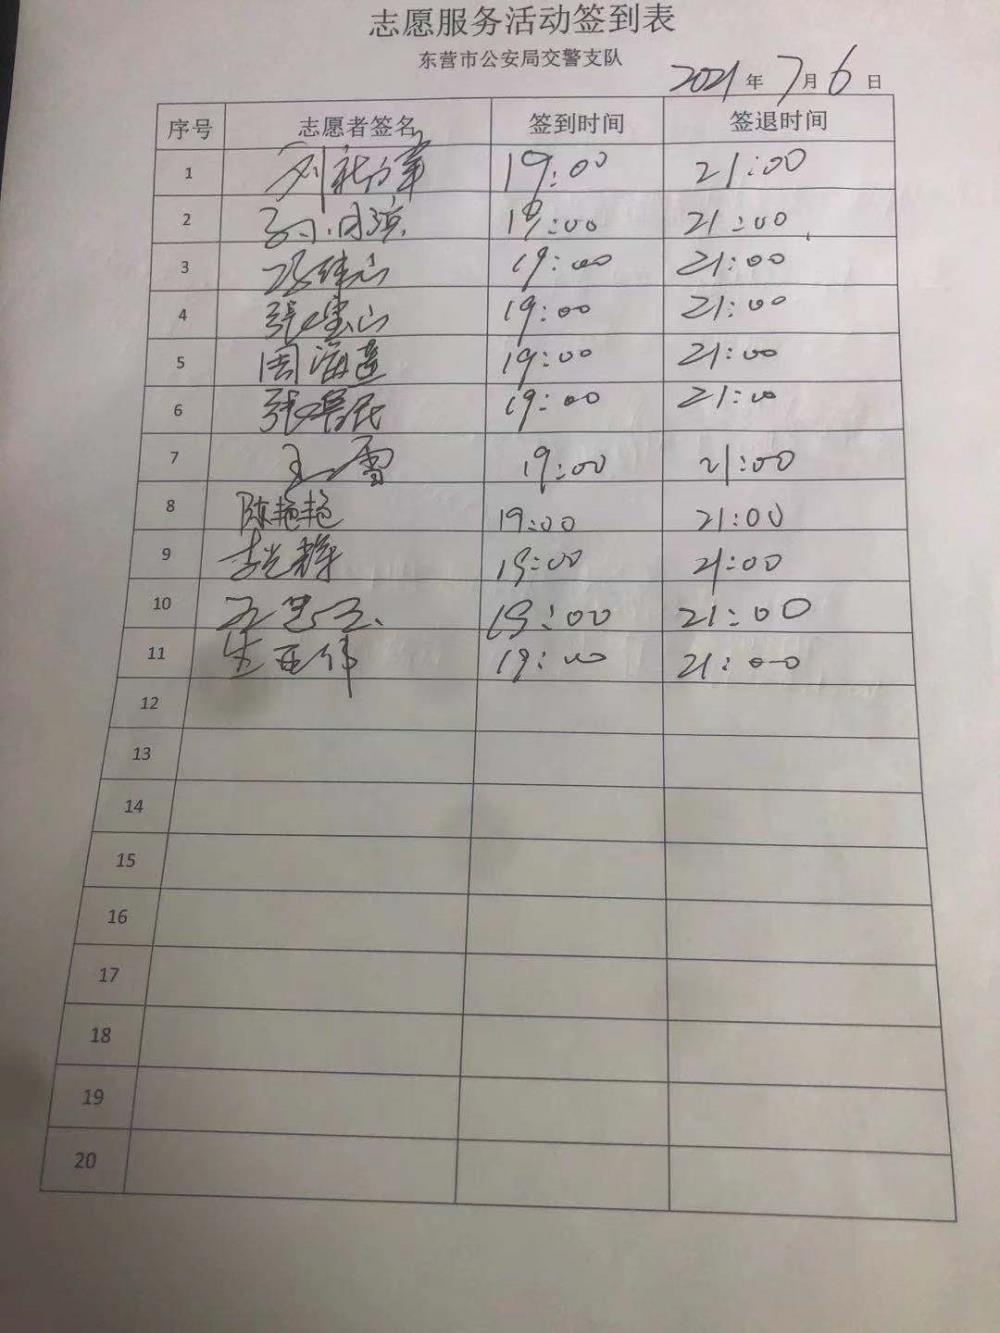 志愿服务活动签到表
东营市公安局交警支队
2021 年 7 月 6 日
序号 志愿者签名 签到时间 签退时间
1 19:00 21:00
2 19:00 21:00
3 19:00 21:00
4 张宝山 19:00 21:00
5 周海莲 19:00 21:00
6 19:00 21:00
7 王雪 19:00 21:00
8 陈艳艳 19:00 21:00
9 李光辉 19:00 21:00
10 19:00 21:00
11 朱亚伟 19:00 21:00
12
13
14
15
16
17
18
19
20